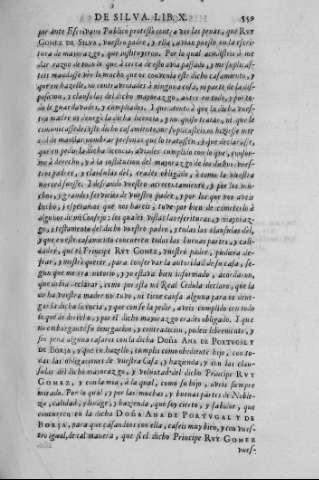 DE SILVA. LIB. X. 559
por ante Escrivano Publico protestò contra vos las penas, que RUY
GOMEZ DE SILVA, vuestro padre, y ella, avian puesto en la escritura
de mayorazgo, que instituyeron. Por lo qual
dar razon de todo lo que à cerca de esto avia passado, y me
mandasse ver lo mucho que os convenia este dicho casamiento, y
que en hazello, no contraveniades à ninguna cosa, ni parte de la
posicion, y clausulas del dicho mayorazgo, antes en todo, y por todo
le guardavades, y cumpliades, I que atento à que la dicha vuestra
madre os denegò la dicha licencia, y no quiso tratar, ni que se
este dicho casamiento, me suplicasteis os hiziesse merced
de mandar nombrar personas que lo tratassen, y que declarasse,
que en pedir la dicha licencia, aviades cumplido con lo que, conforme
à derecho, y à la institucion del mayorazgo de los dichos vuestros
padres, y clausulas del, erades obligado, ò como la nuestra
merced fuesse: I deseando vuestro acrecentamiento, y por los muchos,
y grandes servicios de vuestro padre, y por los que vos aveis
hecho, y esperamos que nos hareis, tuve por bien de cometerlo à
algunos de mi Consejo: los quales vistas las escrituras, y mayorazgo,
y testamento del dicho vuestro padre, y todas las clausulas del,
y que en este casamiento concurren todas las buenas partes, y calidades,
que el Principe RUY GOMEZ, vuestro padre, pudiera
y vuestra parte, para conservar la autoridad de su casa, segun
que murio, y yo estava bien informado, acordaron,
que devia declarar, como por esta mi Real Cedula declaro, que la
dicha vuestra madre no tuvo, ni tiene causa alguna para os denegar
la dicha licencia, y que con se la pedir, aveis cumplido con todo
lo que de derecho, y por el dicho mayorazgo erades obligado. I que
no embargante su denegacion, y contradicion, podeis libremente, y
sin pena alguna casaros con la dicha DOÑA ANA DE PORTUGAL Y
DE BORJA, y que en hazello, cumplis como obediente hijo, con todas
las obligaciones de vuestra Casa, y hazienda, y con las clausulas
del dicho mayorazgo, y voluntad del dicho Principe RUY
GOMEZ, y con la mia, à la qual, como su hijo, aveis siempre
mirado. Por lo qual, y por las muchas, y buenas partes de Nobleza,
calidad, y linage, y hazienda, que soy cierto, y sabidor, que
concurren en la dicha DOÑA ANA DE PORTUGAL Y DE
BORJA, para que casandoos con ella, caseis muy bien, y con vuestro
igual, de tal manera, que si el dicho Principe RUY GOMEZ
vues-